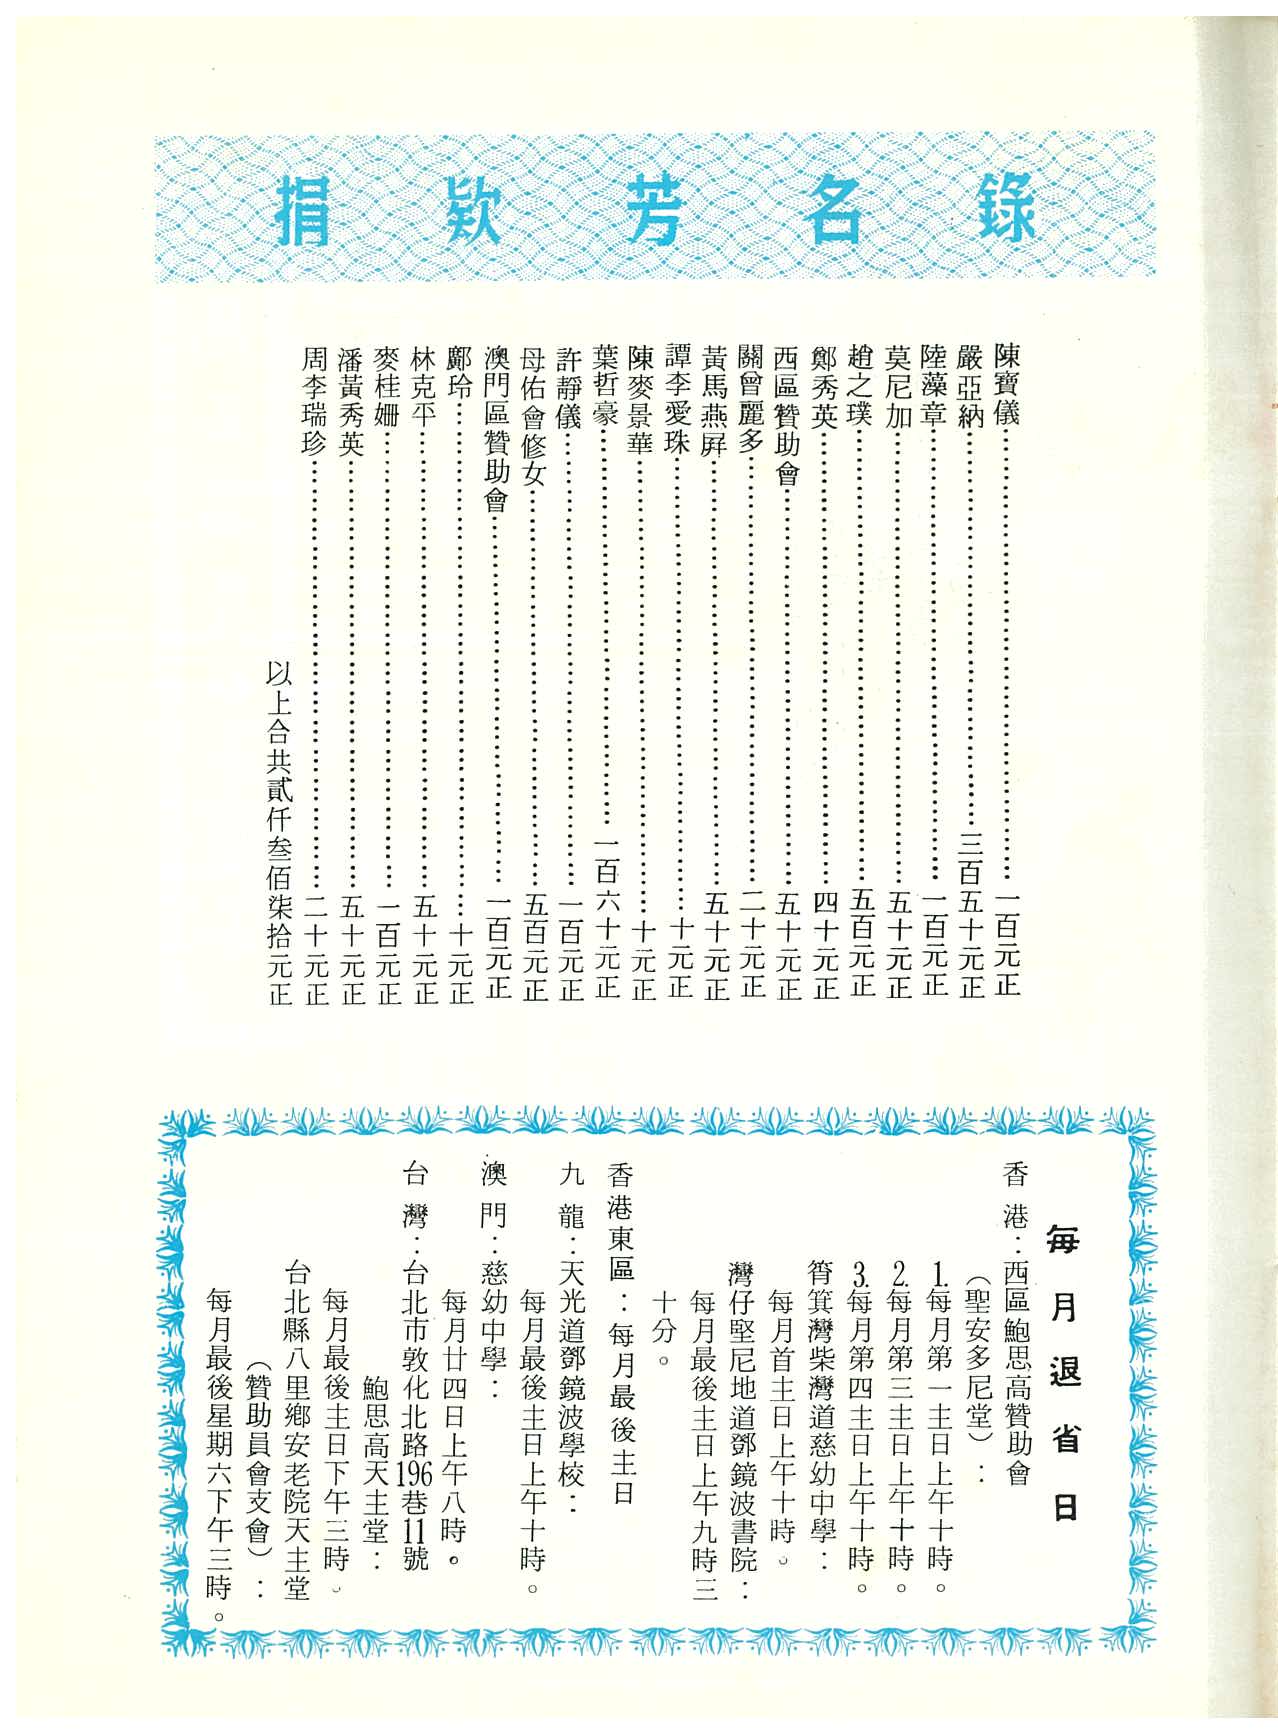 捐款芳名錄
陳寶儀……一百元正
嚴亞納……三百五十元正
陸藻章……一百元正
莫尼加……五十元正
趙之璞……五百元正
鄭秀英……四十元正
西區贊助會……五十元正
關曾麗多……二十元正
黃馬燕屏……五十元正
譚李愛珠……十元正
陳麥景華……十元正
葉哲豪……一百六十元正
許靜儀……一百元正
母佑會修女……五百元正
澳門區贊助會……一百元正
鄺玲……十元正
林克平……五十元正
麥桂姍……一百元正
潘黃秀英……五十元正
周李瑞珍……二十元正
以上合共貳仟叁佰柒拾元正
每月退省日
香港:西區鮑思高贊助會
(聖安多尼堂):
1.每月第一主日上午十時。
2.每月第三主日上午十時。
3.每月第四主日上午十時。
筲箕灣柴灣道慈幼中學:
每月首主日上午十時。
灣仔堅尼地道鄧鏡波書院:
每月最後主日上午九時三
十分。
香港東區:每月最後主日
九龍:天光道鄧鏡波學校:
每月最後主日上午十時。
澳門:慈幼中學:
每月廿四日上午八時。
台灣:台北市敦化北路196巷11號
鮑思高天主堂:
每月最後主日下午三時。
台北縣八里鄉安老院天主堂
(贊助員會支會):
每月最後星期六下午三時。